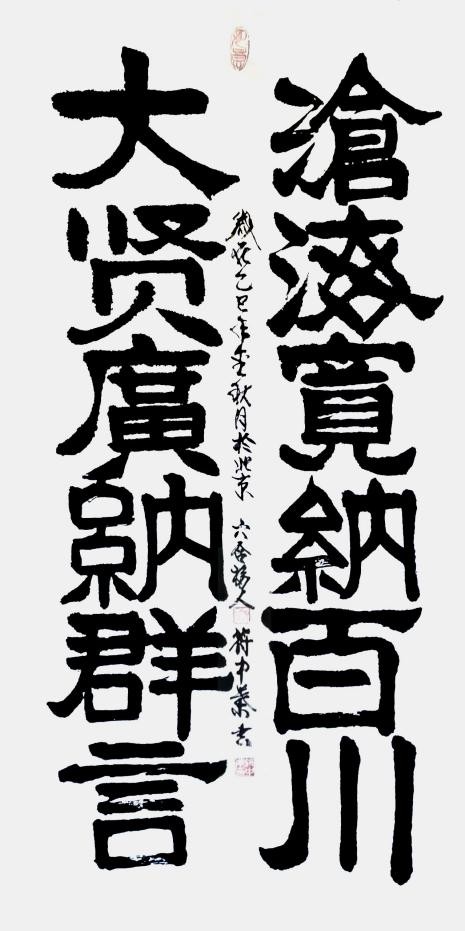 滄海寬納百川
大贤廣納群言
歲在乙巳年金秋月於北京 六居 人 符中 書